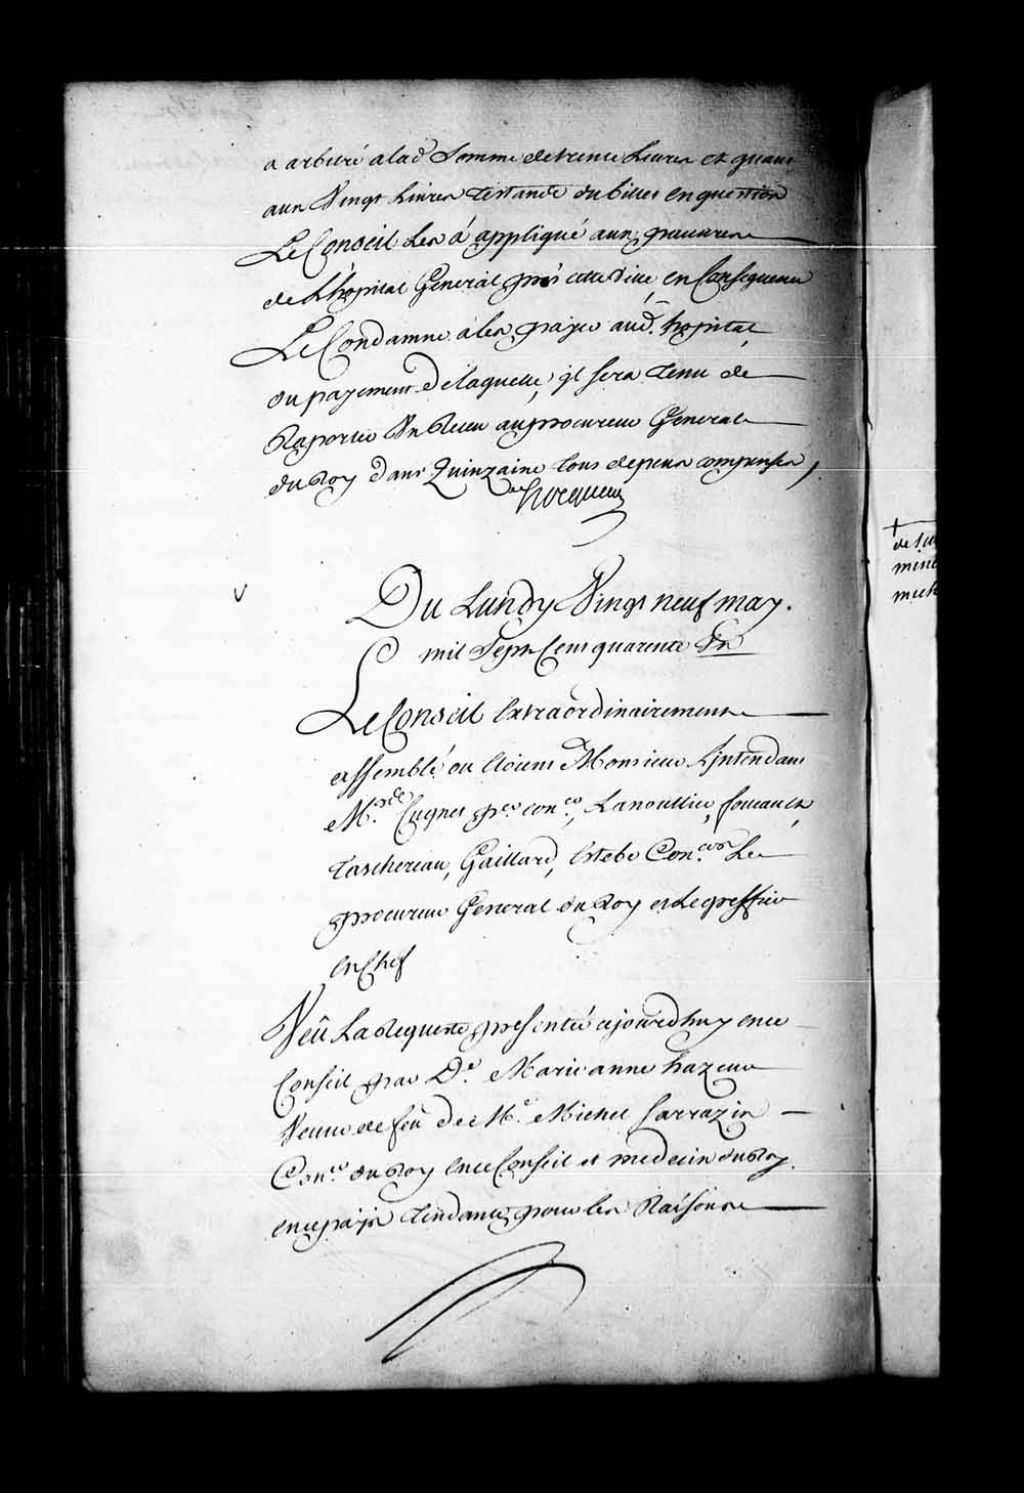 a arbitré alad. Somme de trente Livres et quant
aux Vingt Livres restande du billet en question
Le Conseil Les a appliqué aux pauvres
de L'hopital General prés cette Ville, en Consequence
Le Condamne a les payer aud. hopital,
du payement de laquelle, il sera tenu de
Raporter Un Recu au procureur General
du Roy dans Quinzaine tous depens compensés,
Hocquart
Du Lundy Vingt neuf may.
mil Sept Cens quarente Un
Le Conseil Extraordinairement
assemblé ou etoient Monsieur L'jntendant
Mrs. de Cugnet per. conr., Lanoullier, foucault,
Taschereau, Gaillard, Estebe Coners. Le
procureur General du Roy et Le greffier
en Chef
Veû La Requeste presentée ajourd'huy en ce
Conseil par De. Marie anne hazeur
Veuve de feû Me. Michel Sarrazin
Coner. du Roy en ce Conseil et medecin du Roy.
en ce païs tendante, pour les Raisons
de